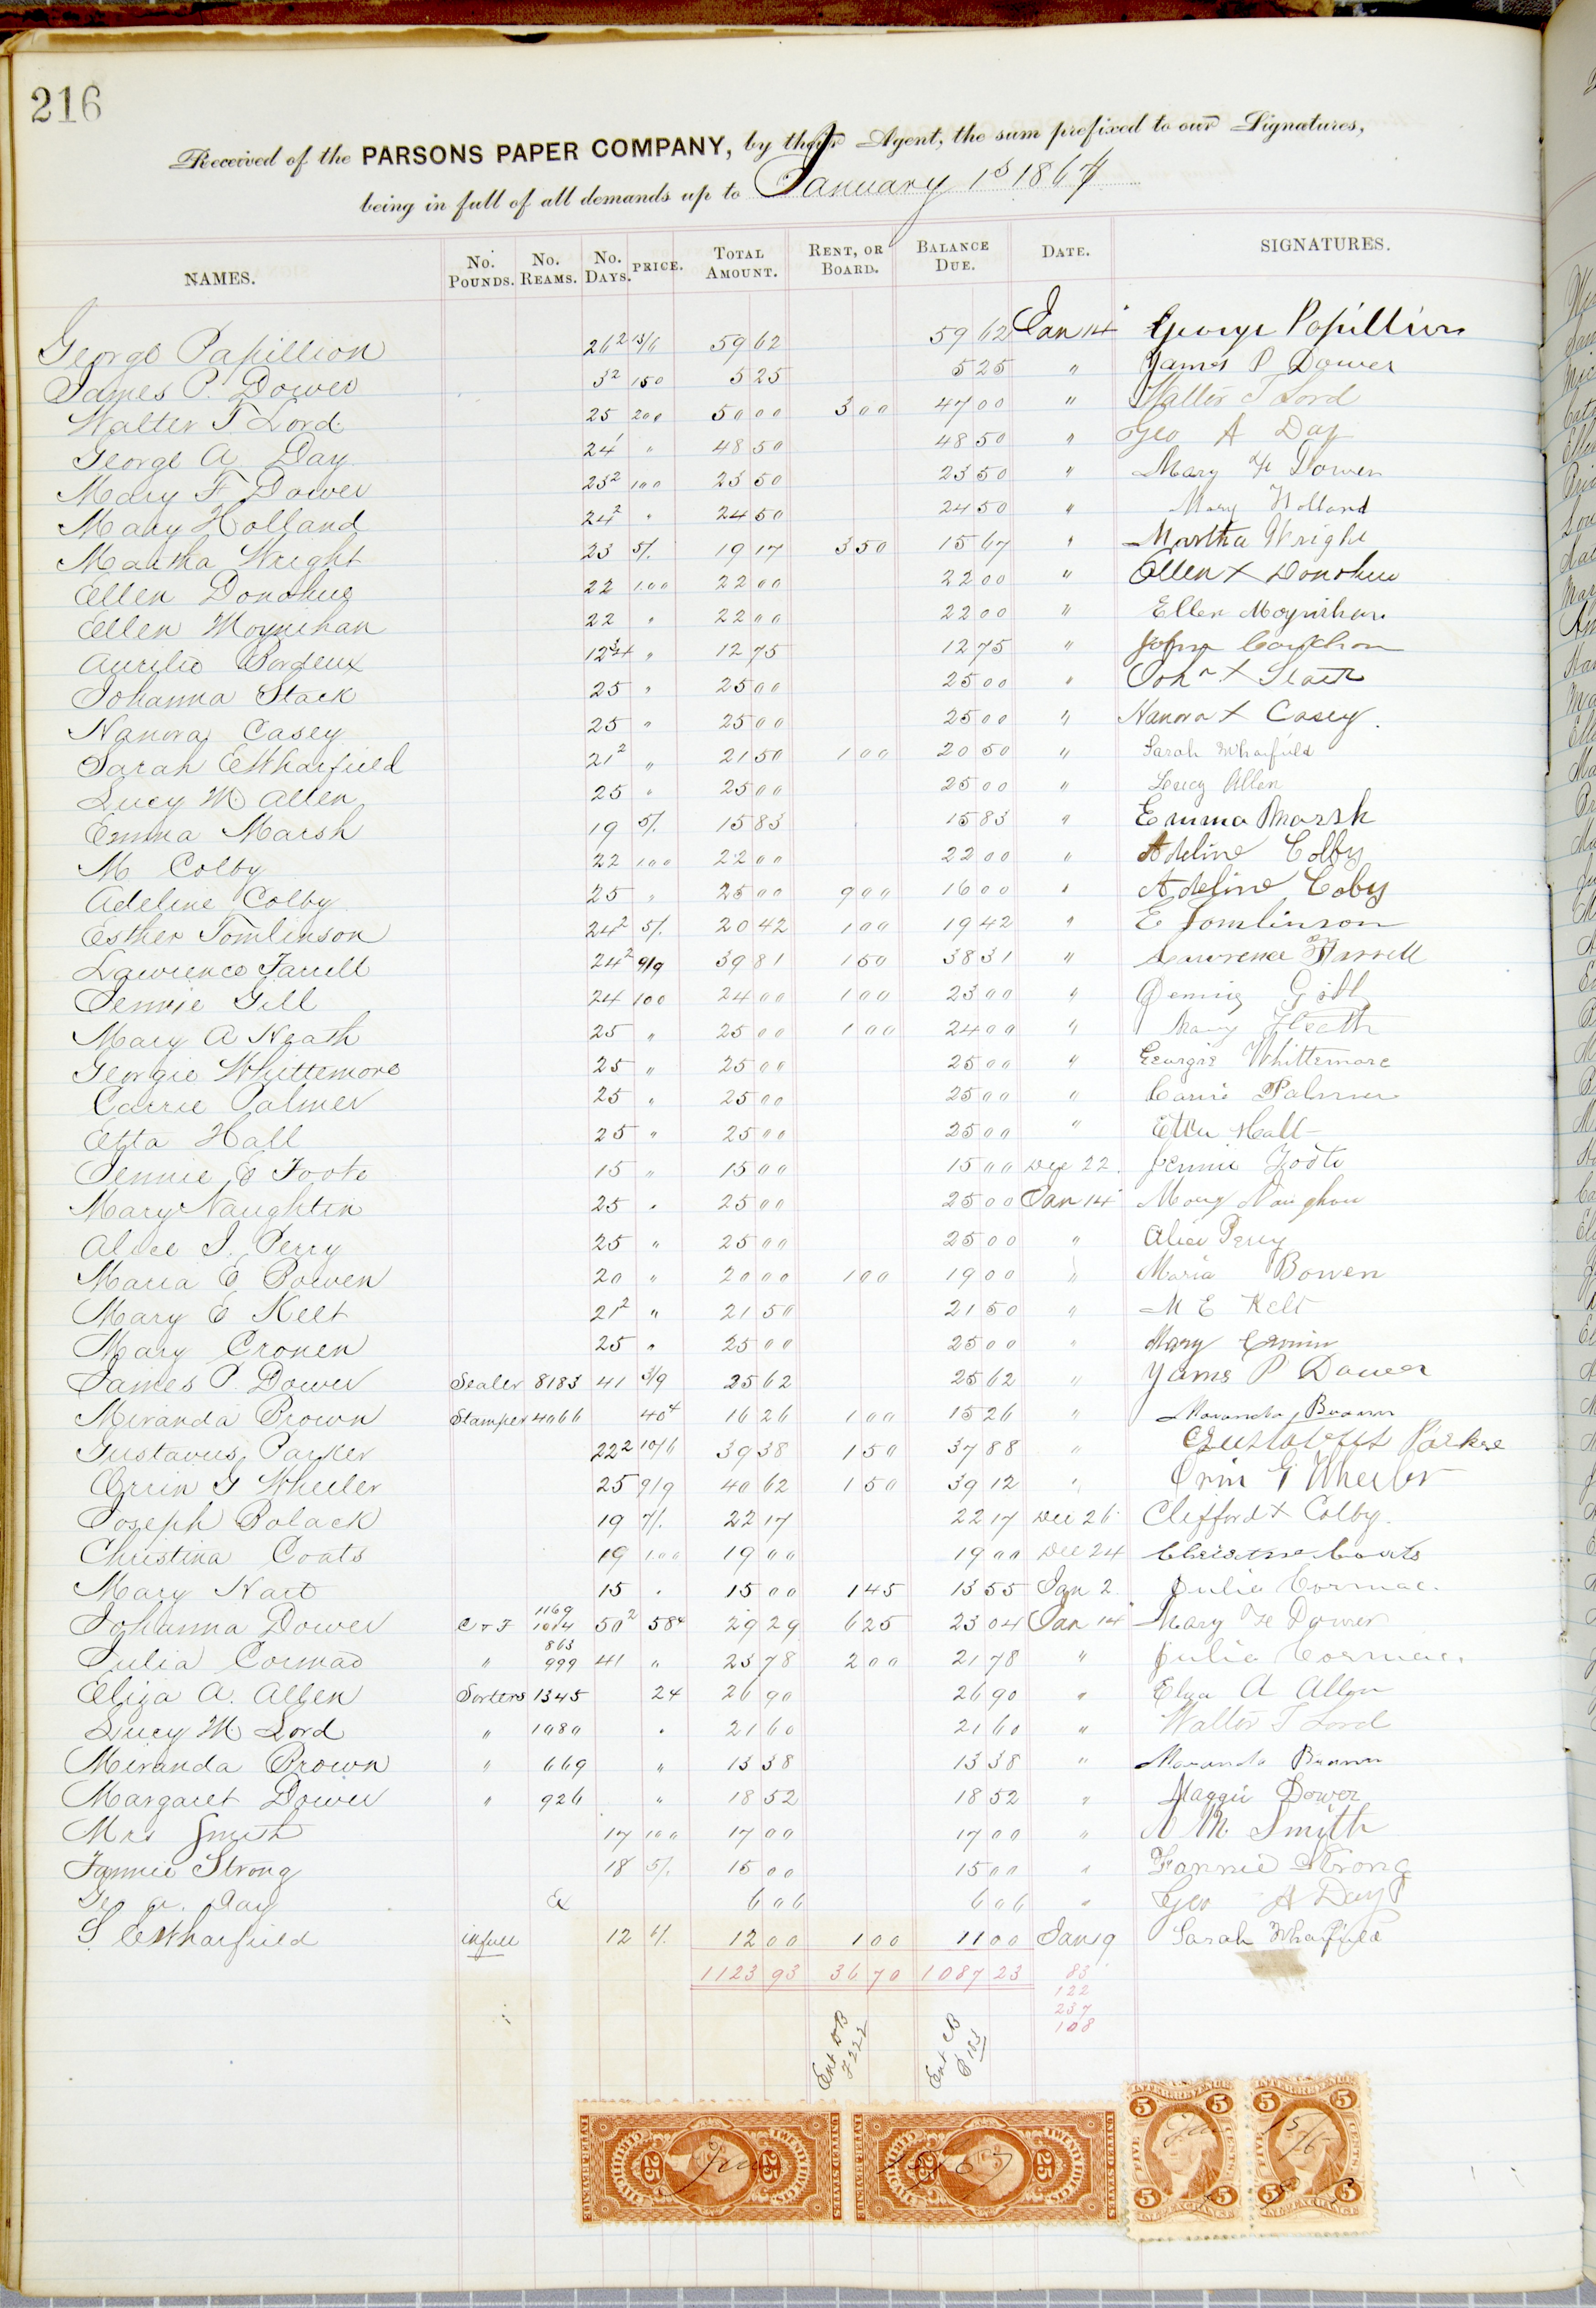 216
Received of the PARSONS PAPER COMPANY, by their Agent, the sum prefixed to our Signatures,
being in full of all demands up to January 1st 1867
NAMES. No. Pounds. No. Reams. No. Days. PRICE. Total Amount. Rent, or Board. Balance Due. Date. SIGNATURES.
George Papillion 26 2 13/6 59 62 59 62 Jan 14 George Papillion
James P. Dower 3 2 150 5 25 5 25 " James P Dower
Walter T Lord 25 200 50 00 3 00 47 00 " Walter T Lord
George A Day 24 1 " 48 50 48 50 " Geo A Day
Mary F Dower 23 2 100 23 50 23 50 " Mary F Dower
Mary Holland 24 2 " 24 50 24 50 " Mary Holland
Martha Wright 23 5/. 19 17 3 50 15 67 " Martha Wright
Ellen Donohue 22 100 22 00 22 00 " Ellen X Donohue
Ellen Moynihan 22 " 22 00 22 00 " Ellen Moynihan
Aurilie Bordeux 12 3/4 " 12 75 12 75 " John
Johanna Stack 25 " 25 00 25 00 " Joha X Stack
Nanora Casey 25 " 25 00 25 00 " Nanora X Casey.
Sarah E Wharfield 21 2 " 21 50 1 00 20 50 " Sarah Wharfield
Lucy M. Allen 25 " 25 00 25 00 " Lucy Allen
Emma Marsh 19 5/. 15 83 15 83 " Emma Marsh
M Colby 22 100 22 00 22 00 " Adeline Colby
Adeline Colby 25 " 25 00 9 00 16 00 " Adeline Coby
Esther Tomlinson 24 2 5/. 20 42 1 00 19 42 " E Tomlinson
Lawrence Farrell 24 2 9/9 39 81 1 50 38 31 " Lawrence Farrell
Jennie Gill 24 100 24 00 1 00 23 00 " Jennie Gill
Mary A Heath 25 " 25 00 1 00 24 00 " Mary Heath
Georgie Whittemore 25 " 25 00 25 00 " Georgie Whittemore
Carrie Palmer 25 " 25 00 25 00 " Carrie Palmer
Etta Hall 25 " 25 00 25 00 " Etta Hall
Jennie E Foote 15 " 15 00 15 00 Dec 22. Jennie Foote
Mary Naughtin 25 " 25 00 25 00 Jan 14 Mary Naughton
Alice J. Perry 25 " 25 00 25 00 " Alice Perry
Maria E Bowen 20 " 20 00 1 00 19 00 " Maria Bowen
Mary E Kelt 21 2 " 21 50 21 50 " M E Kelt
Mary Cronen 25 " 25 00 25 00 " Mary Cronin
James P. Dower Sealer 8183 41 3/9 25 62 25 62 " James P Dower
Miranda Brown Stamper 4066 40 4 16 26 1 00 15 26 " Maranda Brown
Gustavus Parker 22 2 10/6 39 38 1 50 37 88 " Gustavus Parker
Orrin G Wheeler 25 9/9 40 62 1 50 39 12 " Orrin G Wheeler
Joseph Polack 19 7/. 22 17 22 17 Dec 26 Clifford X Colby.
Christina Coats 19 100 19 00 19 00 Dec 24 Christine Coats
Mary Hart 15 " 15 00 1 45 13 55 Jan 2 Julia Cormac.
Johanna Dower C & F 1169 1014 50 2 58 4 29 29 6 25 23 04 Jan 14 Mary F Dower
Julia Cormac " 863 999 41 " 23 78 2 00 21 78 " Julia Cormac.
Eliza A. Allen Sorters 1345 24 26 90 26 90 " Eliza A Allen
Lucy M Lord " 1080 " 21 60 21 60 " Walter T Lord
Miranda Brown " 669 " 13 38 13 38 " Maranda Brown
Margaret Dower " 926 " 18 52 18 52 " Maggie Dower
Mrs Smith 17 100 17 00 17 00 " M Smith
Fannie Strong 18 5/. 15 00 15 00 " Fannie Strong
Geo A. Day Ex 6 06 6 06 " Geo A Day
S E Wharfield in full 12 6/. 12 00 1 00 11 00 Jan 19 Sarah Wharfield
1123 93 36 70 1087 23 83
122
237
108
Ent DB F 222 Ent CB P 183
INTER. REVENUE TWENTY FIVE CENTS 25 UNITED STATES
Jan
INTER. REVENUE TWENTY FIVE CENTS 25 UNITED STATES
1867
INTER. REVENUE 5 5 FIVE CENTS
INTER. REVENUE 5 5 FIVE CENTS